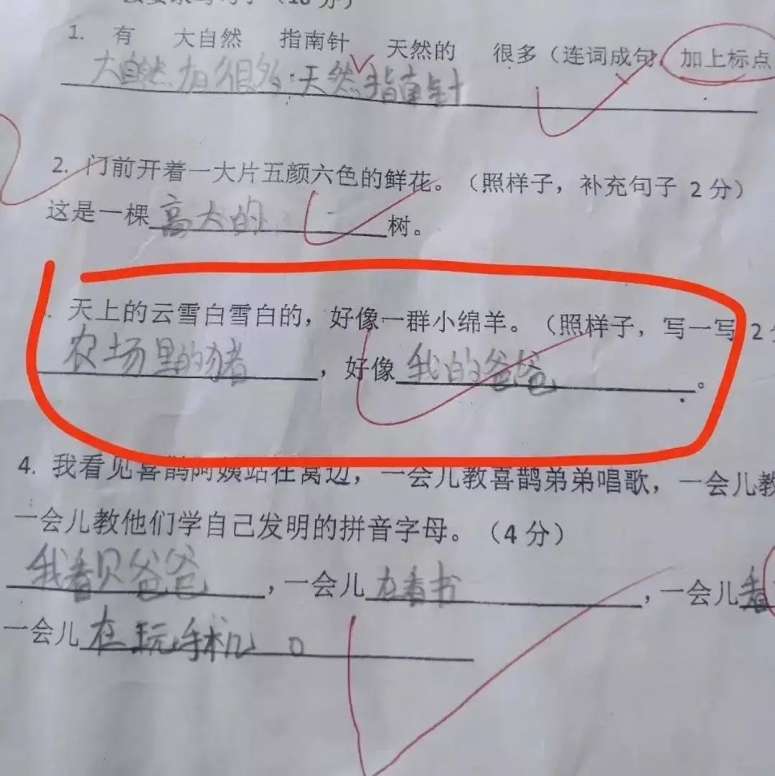 1. 有 大自然 指南针 天然的 很多（连词成句，加上标点
大自然有很多天然指南针
2. 门前开着一大片五颜六色的鲜花。（照样子，补充句子 2 分）
这是一棵高大的树。
天上的云雪白雪白的，好像一群小绵羊。（照样子，写一写 2
农场里的猪，好像我的爸爸。
4. 我看见喜鹊阿姨站在窝边，一会儿教喜鹊弟弟唱歌，一会儿教
一会儿教他们学自己发明的拼音字母。（4 分）
我看见爸爸，一会儿在看书，一会儿看
一会儿在玩手机。